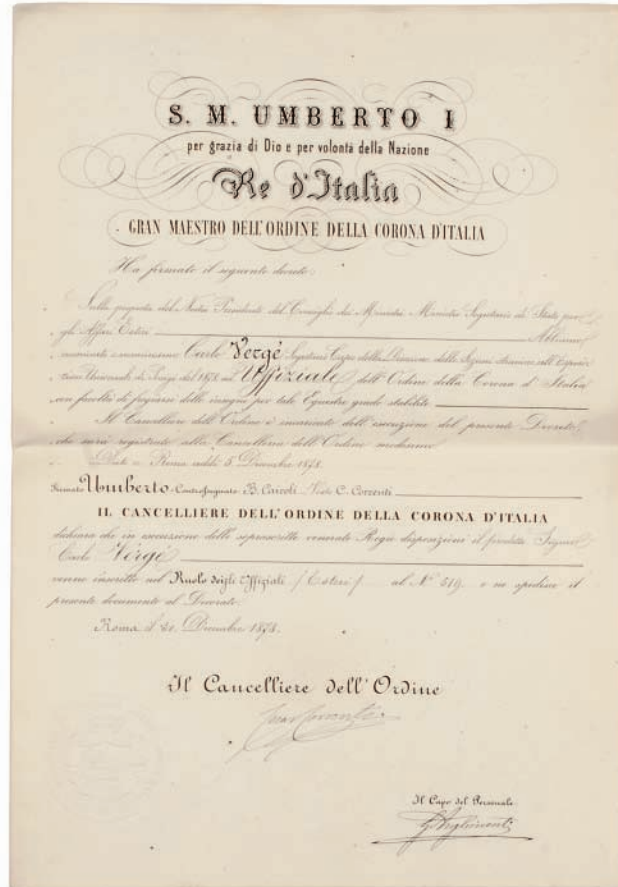 S. M. UMBERTO I
per grazia di Dio e per volontà della Nazione
Re d'Italia
GRAN MAESTRO DELL'ORDINE DELLA CORONA D'ITALIA
Ha firmato il seguente decreto:
Sulla proposta del Nostro Presidente del Consiglio dei Ministri Ministro Segretario di Stato per
gli Affari Esteri Abbiamo
nominato e nominiamo Carlo Vergé Segretario Capo della Direzione delle Sezioni straniere all'Esposi
zione Universale di Parigi del 1878 ad Uffiziale dell'Ordine della Corona d'Italia
con facoltà di fregiarsi delle insegne per tale Equestre grado stabilite
Il Cancelliere dell'Ordine è incaricato dell'esecuzione del presente Decreto
che sarà registrato alla Cancelleria dell'Ordine medesimo
Dato a Roma addì 5 Dicembre 1878.
Firmato Umberto Controfirmato B. Cairoli Visto C. Correnti
IL CANCELLIERE DELL'ORDINE DELLA CORONA D'ITALIA
dichiara che in esecuzione delle soprascritte venerate Regie disposizioni il predetto Signor
Carlo Vergé
venne inscritto nel Ruolo degli Uffiziali (Esteri) al N° 519 e ne spedisce il
presente documento al Decorato.
Roma, il Dicembre 1878.
Il Cancelliere dell'Ordine
Il Capo del Personale